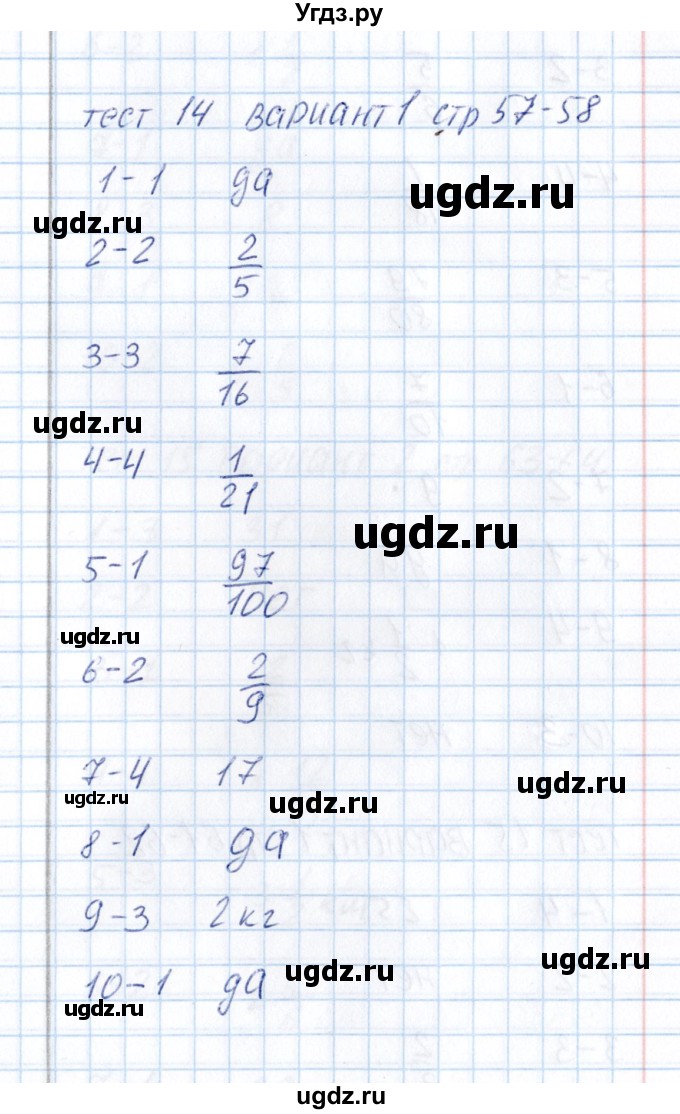 Угдз.ру
тест 14 вариант 1 стр 57-58
1-1 да
ugdz.ru
ugdz.ru
2-2 2/5
3-3 7/16
ugdz.ru
4-4 1/21
ugdz.ru
5-1 97/100
ugdz.ru
6-2 2/9
7-4 17
ugdz.ru
ugdz.ru
ugdz.ru
8-1 да
9-3 2 кг
ugdz.ru
ugdz.ru
10-1 да
ugdz.ru
ugdz.ru